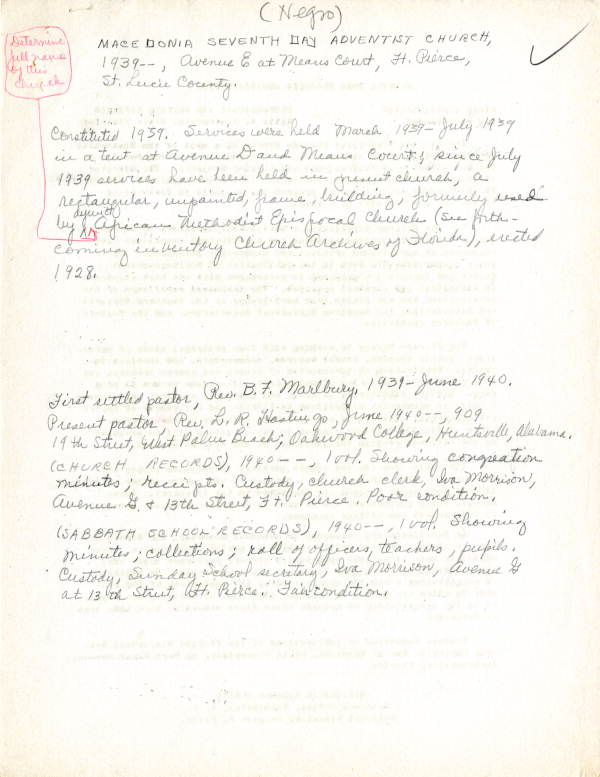 (Negro)
Determine
full name
of this
church
MACEDONIA SEVENTH DAY ADVENTIST CHURCH,
1939--, Avenue E at Means Court, Ft. Pierce,
St. Lucie County.
Constituted 1939. Services were held March 1939- July 1939
in a tent at Avenue D and Means Court; since July
1939 services have been held in present church, a
rectangular, unpainted, frame, building, formerly used
by African Methodist Episcopal Church (See forth-
coming inventory Church Archives of Florida), erected
1928.
First settled pastor, Rev. B. F. Marlbury, 1939- June 1940.
Present pastor Rev. L. R. Hastings, June 1940--, 909
19th Street, West Palm Beach; Oakwood College, Huntsville, Alabama.
(CHURCH RECORDS), 1940--, 1 vol. Showing congreation
minutes; receipts. Custody, church clerk, Iva Morrison,
Avenue G & 13th Street, Ft. Pierce. Poor condition.
(SABBATH SCHOOL RECORDS), 1940--, 1 vol. Showing
minutes; collections; roll of officers, teachers, pupils.
Custody, Sunday School secretary, Iva Morrison, Avenue G
at 13th Street, Ft. Pierce. Fair condition.